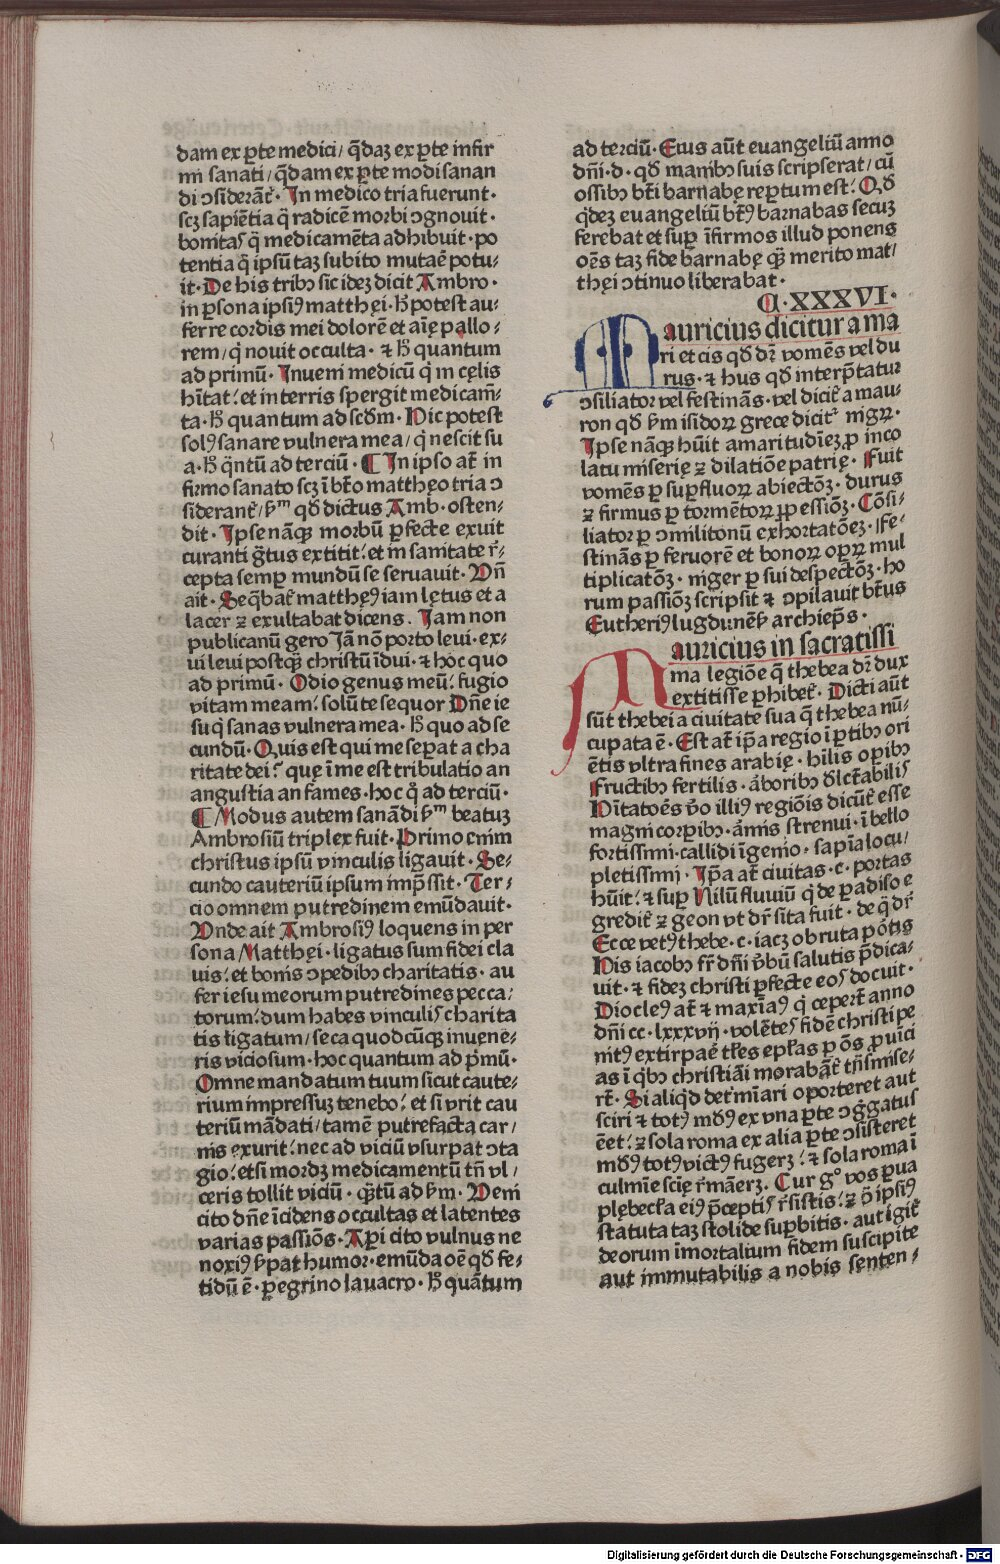 dam ex ꝑte medici/ q̄daz ex ꝑte infir
mi sanati/ q̄dam ex ꝑte modi sanan
di ↄsiderāt᷑. In medico tria fuerunt.
scꝫ sapiētia q̄ radicē morbi ↄgnouit.
bonitas q̄ medicamēta adhibuit. po
tentia q̄ ipsū taz subito mutaē potu-
it. De his tribꝰ sic idez dicit Ambro.
in ꝑsona ipsiꝰ matthęi. H̄ potest au-
ferre cordis mei dolorē et aīę pallo-
rem/ q̇ nouit occulta. ⁊ H̄ quantum
ad primū. Inueni medicū q̇ in cęlis
hītat: et in terris spergit medicam̄-
ta. H̄ quantum ad scd̄m. Hic potest
solꝰ sanare vulnera mea/ q̇ nescit su
a. H̄ q̄ntū ad terciū. ¶ In ipso at̄ in
firmo sanato scꝫ ī bt̄o matthęo tria ↄ
siderant᷑/ ẜm qd̄ dictus Amb. osten-
dit. Ipse nāqꝫ morbū ꝑfecte exuit
curanti g̊tus extitit: et in sanitate r̄-
cepta semꝑ mundū se seruauit. Vn̄
ait. Seq̄bat᷑ matthęꝰ iam lętus et a
lacer ⁊ exultabat dicens. Iam non
publicanū gero Iā nō porto leui. ex-
ui leui postqꝫ christū īdui. ⁊ hoc quo
ad primū. Odio genus meū: fugio
vitam meam: solū te sequor Dn̄e ie
su q̇ sanas vulnera mea. H̄ quo ad se
cundū. Quis est qui me seꝑat a cha
ritate dei: quę ī me est tribulatio an
angustia an fames. hoc q̇ ad terciū.
¶ Modus autem sanādi ẜm beatuꝫ
Ambrosiū triplex fuit. Primo enim
christus ipsū vinculis ligauit. Se-
cundo cauteriū ipsum imp̄ssit. Ter-
cio omnem putredinem emūdauit.
Vnde ait Ambrosiꝰ loquens in per
sona Matthęi. ligatus sum fidei cla
uis: et bonis ↄpedibꝰ charitatis. au
fer iesu meorum putredines pecca-
torum: dum habes vinculis charita
tis ligatum/ seca quodcūqꝫ inuene-
ris viciosum. hoc quantum ad p̄mū.
Omne mandatum tuum sicut caute-
rium impressuꝫ tenebo: et si vrit cau
teriū mādati/ tamē putrefacta car/
nis exurit: nec ad viciū vsurpat ↄta
gio: etsi mordꝫ medicamentū tn̄ vl/
ceris tollit viciū. q̄tū ad ẜm. Veni
cito dn̄e īcidens occultas et latentes
varias passiōs. Aꝑi cito vulnus ne
noxiꝰ ẜpat humor. emūda oē qd̄ fe-
tidū ē. ꝑegrino lauacro. H̄ quātum
ad terciū. Eius aūt euangeliū anno
dn̄i. d. qd̄ manibꝰ suis scripserat/ cū
ossibꝰ bt̄i barnabę reꝑtum est: Qd̄
q̇dez euangeliū bt̄ꝰ barnabas secuꝫ
ferebat et suꝑ īfirmos illud ponens
oēs taz fide barnabę qꝫ merito mat/
thęi ↄtinuo liberabat.
C. XXXVI.
Mauricius dicitur a ma
ri et cis qd̄ dr̄ vomēs vel du
rus. ⁊ hus qd̄ interp̄tatur
ↄsiliator vel festinās. vel dicit᷑ a mau-
ron qd̄ ẜm isidoꝝ grece dicit᷑ nigꝝ.
Ipse nāqꝫ hūit amaritudīez ꝓ inco
latu miserię ⁊ dilatiōe patrię. Fuit
vomēs ꝑ suꝑfluoꝝ abiectōꝫ. durus
⁊ firmus ꝑ tormētoꝝ ꝑpessiōꝫ. Cōsi-
liator ꝑ ↄmilitonū exhortatōez. Fe-
stinās ꝑ feruorē et bonoꝝ oꝑꝝ mul
tiplicatōꝫ. niger ꝑ sui despectōꝫ. ho
rum passiōꝫ scripsit ⁊ ↄpilauit bt̄us
Eutheriꝰ lugdunēẜ archiep̄s.
Mauricius in sacratissi
ma legiōe q̄ thebea dr̄ dux
extitisse ꝑhibet᷑. Dicti aūt
sūt thebei a ciuitate sua q̄ thebea nū-
cupata ē. Est at̄ ip̄a regio ī ꝑtibꝰ ori
ētis vltra fines arabię. hīlis oꝑibꝰ
fructibꝰ fertilis. arboribꝰ dlctabilis
Hītatoēs v̄o illiꝰ regiōis dicūt᷑ esse
magni corꝑibꝰ. armis strenui. ī bello
fortissimi. callidi īgenio. sapīa locu/
pletissimi. Ip̄a at̄ ciuitas. c. portas
hūit: ⁊ suꝑ Nilū fluuiū q̇ de padiso e
gredit᷑ ⁊ geon vt dr̄ sita fuit. de q̄ dr̄
Ecce vetꝰ thebe. c. iacꝫ obruta portis
His iacobꝰ fr̄ dn̄i v̄bū salutis p̄dica/
uit. ⁊ fidez christi ꝑfecte eos docuit.
Dioclesꝰ at̄ ⁊ maxīaꝰ q̇ ceꝑt̄ anno
dn̄i cc. lxxxvij. volētes fidē christi pe
nitꝰ extirpaē tłes epłas ꝑ oēs ꝓuīci
as ī q̇bꝰ christiāi morabāt᷑ trāsmise-
rt̄. Si aliqd̄ det᷑mīari oporteret aut
sciri ⁊ totꝰ mūdꝰ ex vna ꝑte ↄg̊gatus
ēet: ⁊ sola roma ex alia ꝑte ↄsisteret
mūdꝰ totꝰ victꝰ fugerꝫ: ⁊ sola roma ī
culmīe scīę r̄māerꝫ. Cur gͦ vos ꝑua
plebecła eiꝰ p̄ceptis r̄sistis: ⁊ ꝯ̄ ipsiꝰ
statuta taz stolide suꝑbitis. aut igit᷑
deorum īmortalium fidem suscipite
aut immutabilis a nobis senten-
Digitalisierung gefördert durch die Deutsche Forschungsgemeinschaft - DFG